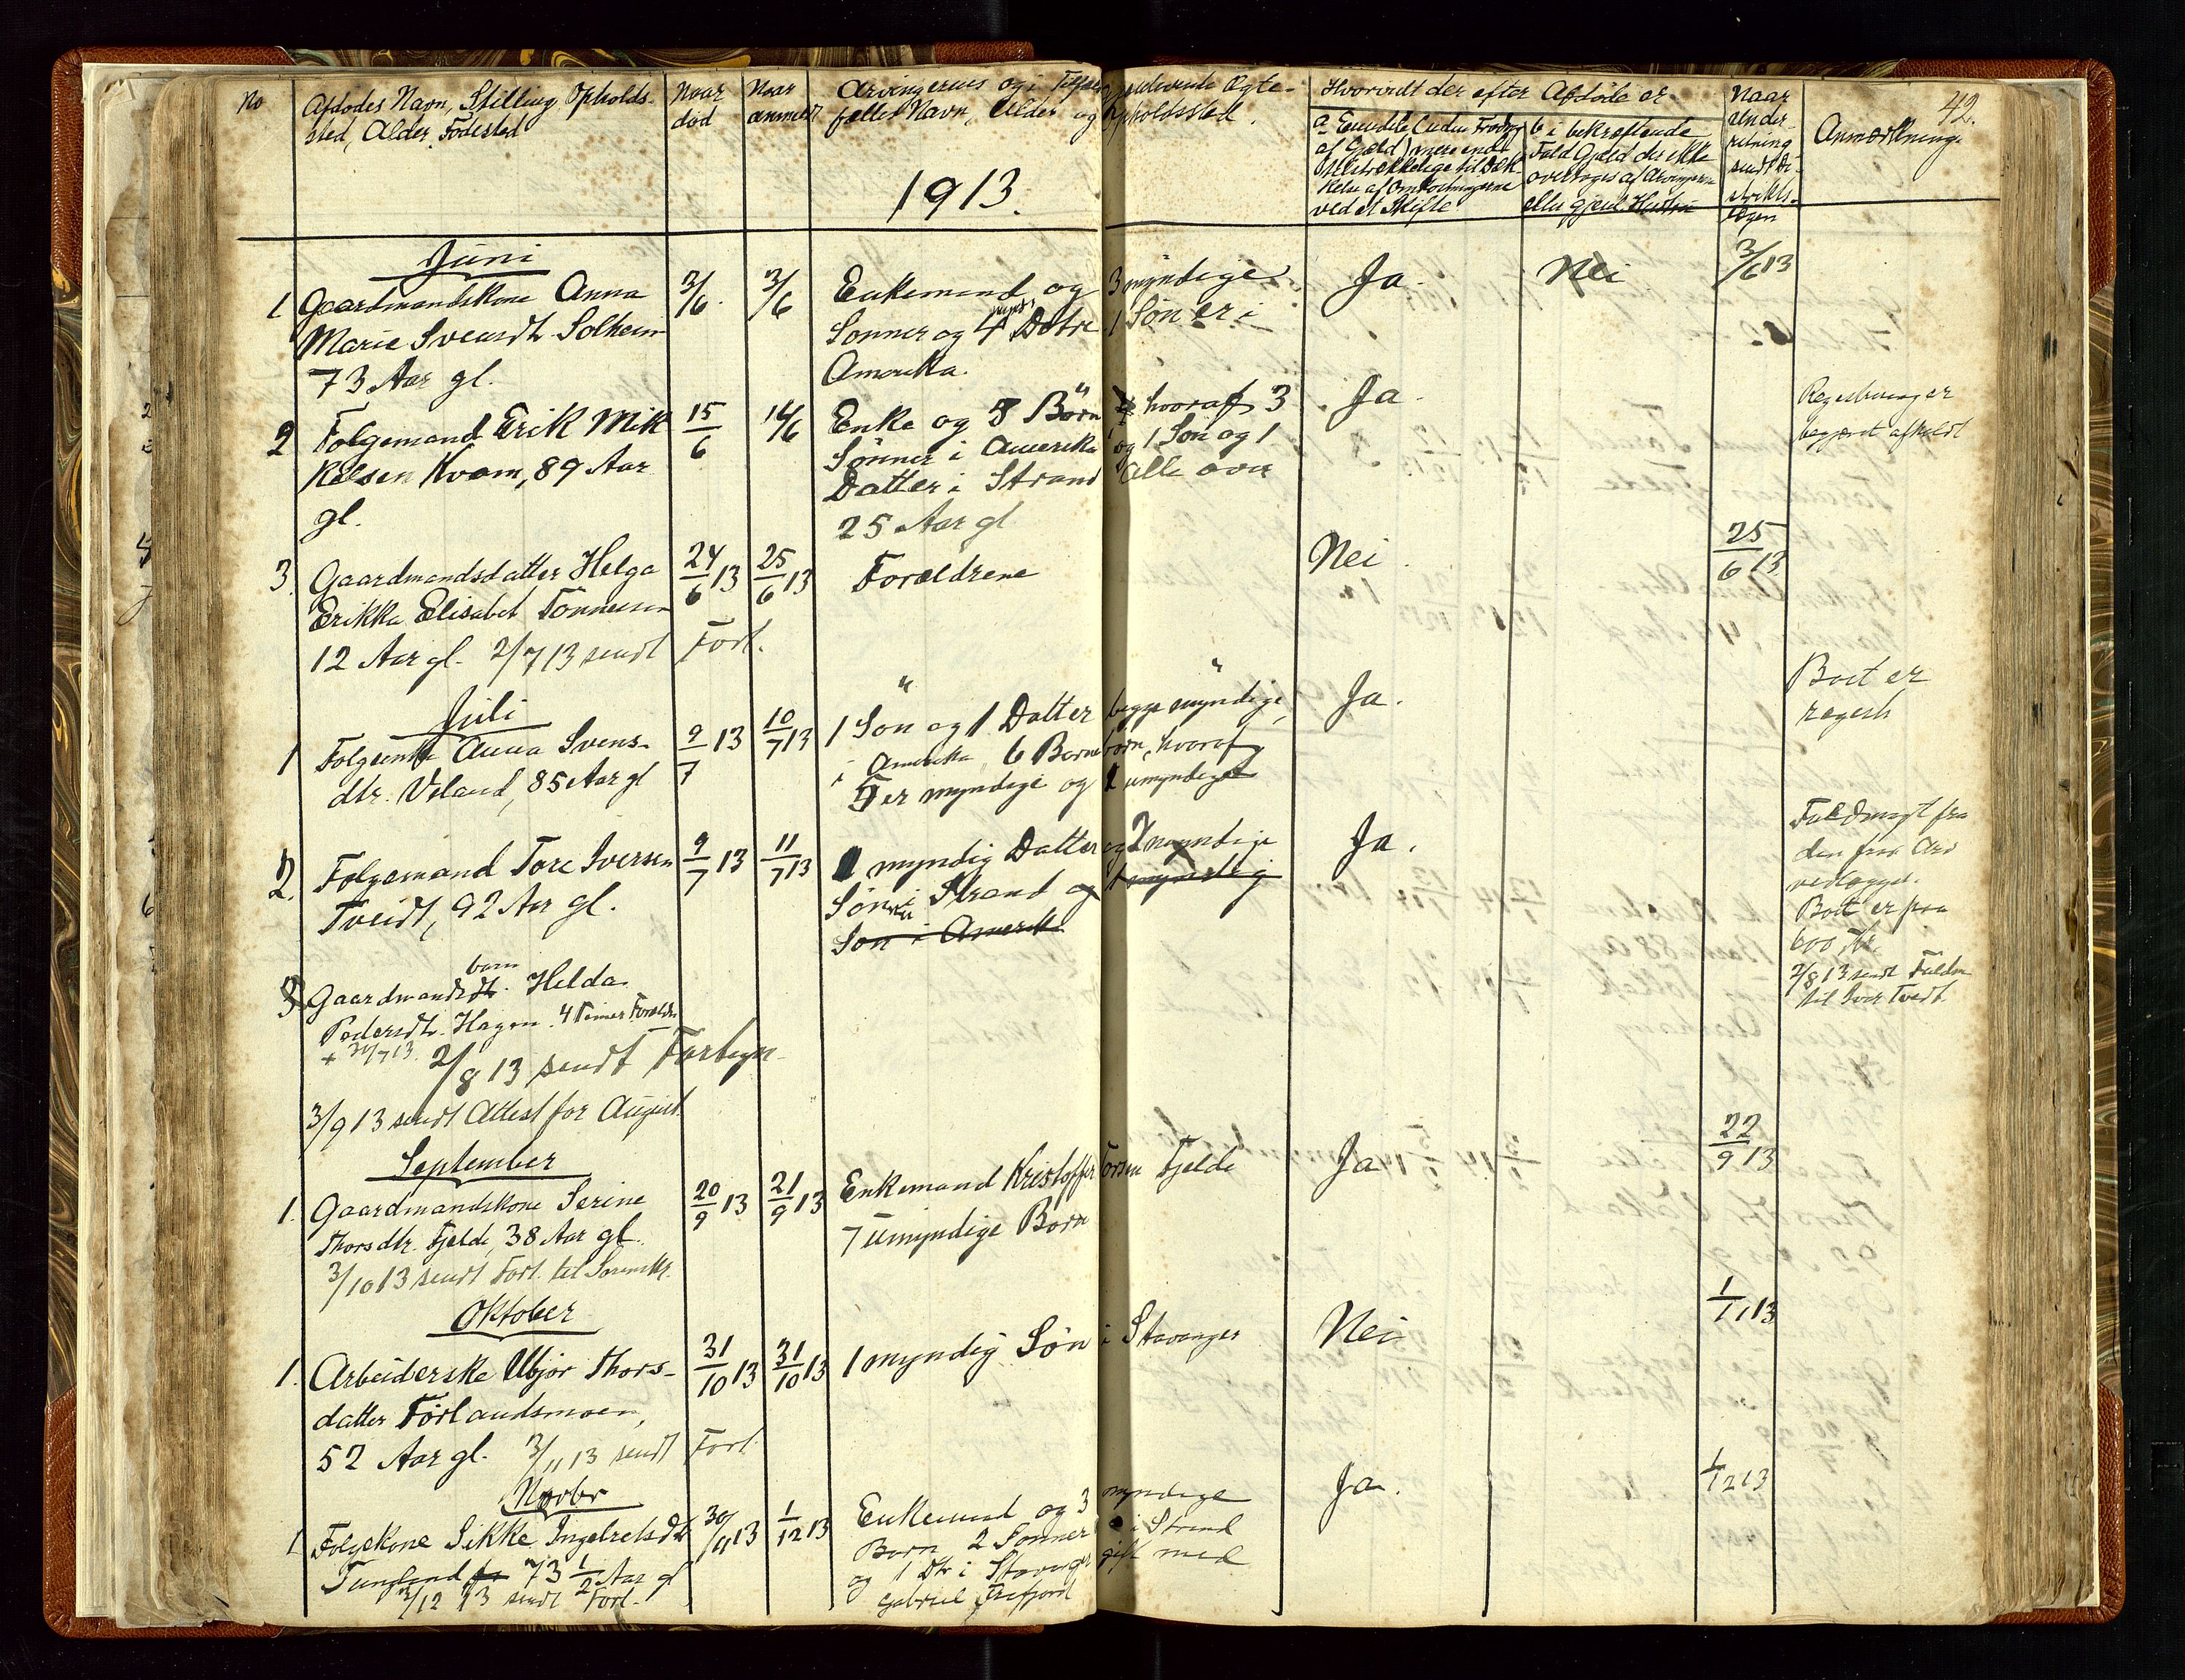 42.
No Afdødes Navn, Stilling, Opholds- Naar Naar Arvingernes og i Tilfælde gjenlevende Ægte- Hvorvidt der efter Afdøde er Naar Anmærkninger
sted, Alder, Fødested død anmeldt fælles Navn, Alder og Opholdssted.
a Eiendele (uden Fradrag b i bekræftende under-
af Gjæld) mere end Fald Gjæld der ikke retning
tilstrækkelige til Dæk- overtages af Arvingerne sendt Di-
kelse af Omkostningerne eller gjenl. Hustru strikts-
ved et Skifte lægen
1913.
Juni
1 Gaardmandskone Anna 3/6. 3/6 Enkemand og 3 myndige Ja. Nei 3/6 13
Marie Svensdt. Solheim Sønner og 4 mynd. Døtre 1 Søn er i
73 Aar gl. Amerika.
2 Folgemand Erik Mik 15/6 14/6 Enke og 8 Børn hvoraf 3 Ja. Registrering er
kelsen Kvam, 89 Aar Sønner i Amerika og 1 Søn og 1 begjært afholdt
gl. Datter i Strand alle over
25 Aar gl
3. Gaardmandsdatter Helga 24/6 13 25/6 13 Forældrene Nei. 25/6 13
Erikka Elisabet Tønnesen
12 Aar gl. 2/7 13 sendt Fort.
Juli
1 Folgeenke Anna Svens- 9/7 13 10/7 13 1 Søn og 1 Datter begge myndige, Ja. Boet er
dtr. Veland, 85 Aar gl i Amerika 6 Barnebørn, hvoraf regestr
5 er myndige og 1 umyndig
2. Folgemand Tore Iversen 9/7 13 11/7 13 1 myndig Datter og 2 myndige Ja. Fuldmagt fra
Tveidt, 92 Aar gl. Sønner i Strand og 1 myndig den fra Arv
Søn i Amerik vedlægges.
Boet er paa
600 Kr.
2/8 13 sendt Fuldm
til Iver Tvedt
3 Gaardmandsbarn Helda
Pedersdt. Hagen. 4 Timer Foræld
+ 31/7 13. 2/8 13 sendt Fortegn-
3/9 13 sendt Attest for August
September
1. Gaardmandskone Serine 20/9 13 21/9 13 Enkemand Kristoffer Torsen Fjelde Ja 22/9 13
Thorsdtr. Fjelde, 38 Aar gl. 7 umyndige Børn
3/10 13 sendt Fort. til Sorenskr.
Oktober
1. Arbeiderske Abjør Thors- 31/10 13 31/10 13 1 myndig Søn i Stavanger Nei 1/11 13
datter Førlandsmoen,
52 Aar gl. 3/11 13 sendt Fort.
Novbr
1 Folgekone Sikke Ingebretsdt 30/11 13 1/12 13 Enkemand og 3 myndige Ja. 1/12 13
Tungland 73 1/2 Aar gl Børn 2 Sønner i Strand
2/12 13 sendt Fort. og 1 Dtr i Stavanger gift med
Gabriel Frafjord